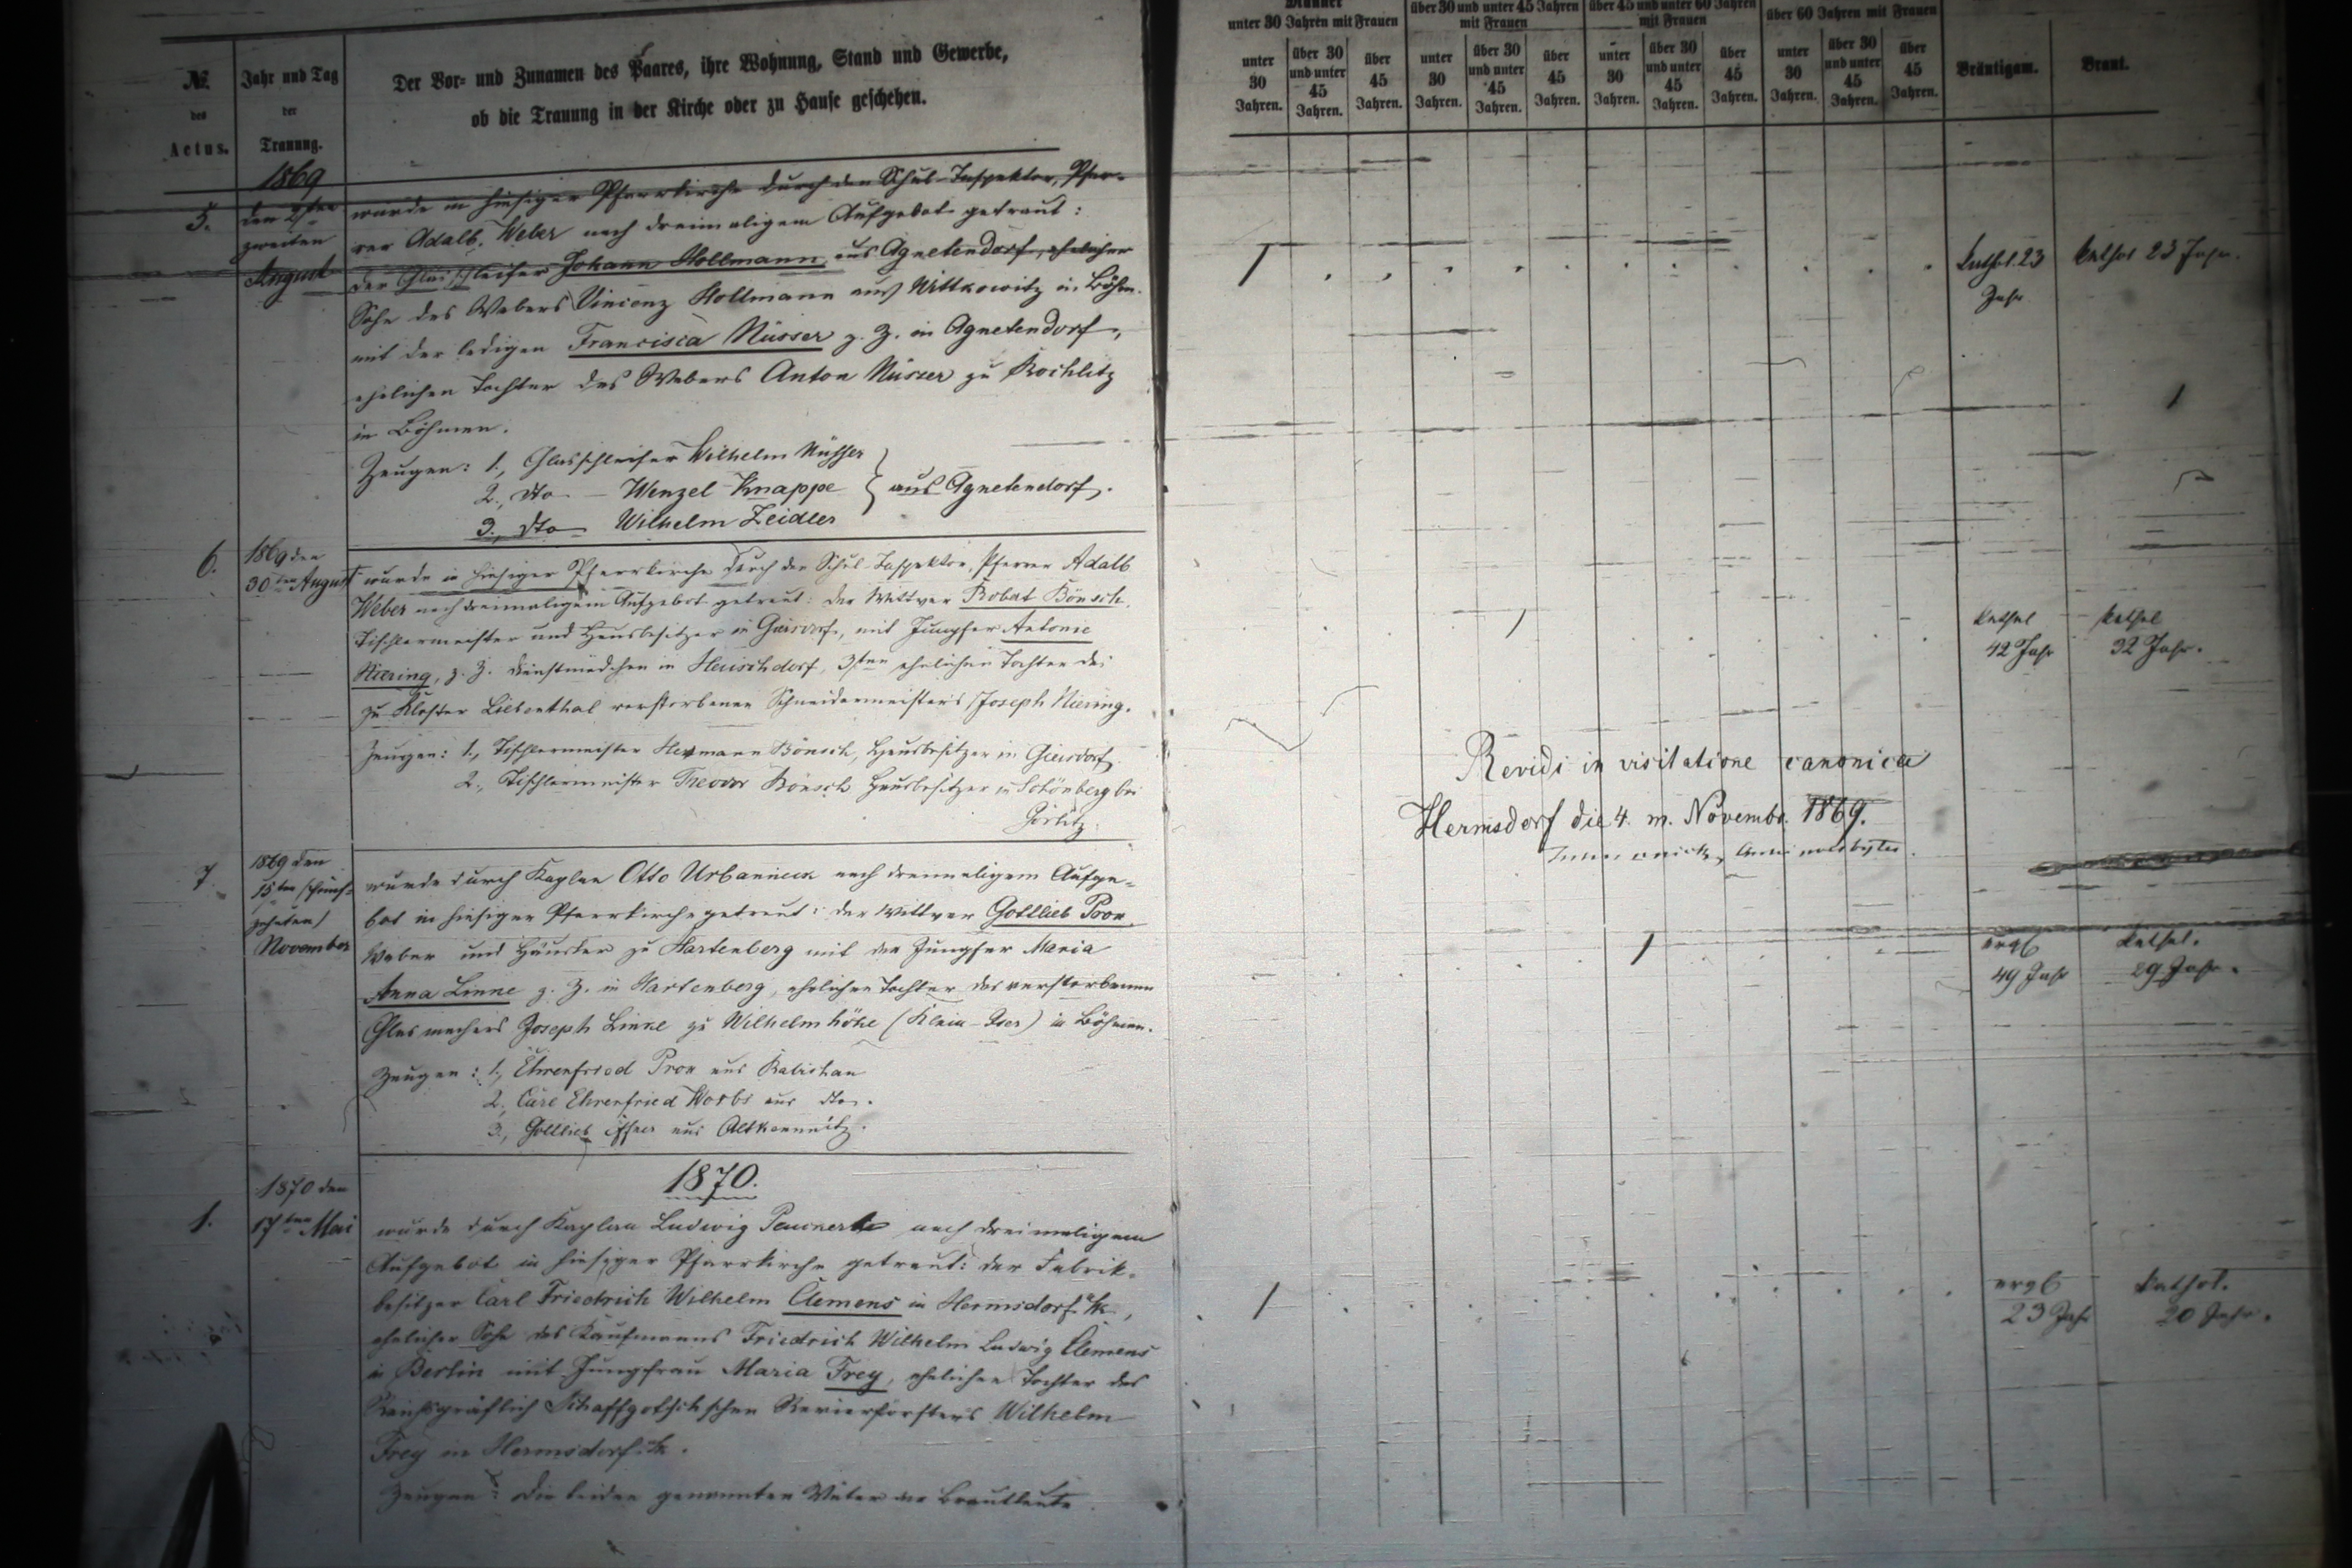 №.
des
Actus.
Jahr und Tag
der
Trauung.
Der Vor- und Zunamen des Paares, ihre Wohnung, Stand und Gewerbe,
ob die Trauung in der Kirche oder zu Hause geschehen.
Männer
unter 30 Jahren mit Frauen
über 30 und unter 45 Jahren
mit Frauen
über 45 und unter 60 Jahren
mit Frauen
über 60 Jahren mit Frauen
unter 30 Jahren.
über 30 und unter 45 Jahren.
über 45 Jahren.
unter 30 Jahren.
über 30 und unter 45 Jahren.
über 45 Jahren.
unter 30 Jahren.
über 30 und unter 45 Jahren.
über 45 Jahren.
unter 30 Jahren.
über 30 und unter 45 Jahren.
über 45 Jahren.
Bräutigam.
Braut.
1869
5.
den 2ten
zweiten
August
wurde in hiesiger Pfarrkirche durch den Schul-Inspektor, Pfar-
rer Adalb. Weber nach dreimaligem Aufgebot getraut:
der Glasschleifer Johann Hollmann aus Agnetendorf, ehelicher
Sohn des Webers Vincenz Hollmann aus Wittkowitz in Böhm.
mit der ledigen Francisca Nüsser z. Z. in Agnetendorf,
ehelichen Tochter des Webers Anton Nüsser zu Rochlitz
in Böhmen.
Zeugen: 1., Glasschleifer Wilhelm Nüsser
2., dto – Wenzel Knappe } aus Agnetendorf.
3., dto – Wilhelm Zeidler
1
kathol. 23
Jahr
kathol 23 Jahr.
6.
1869 den
30ten August
wurde in hiesiger Pfarrkirche durch den Schul-Inspektor, Pfarrer Adalb.
Weber nach dreimaligem Aufgebot getraut: der Wittwer Robert Bönsch,
Tischlermeister und Hausbesitzer in Giersdorf, mit Jungfer Antonie
Niering, z. Z. Dienstmädchen in Herischdorf, 3ten ehelichen Tochter des
zu Kloster Liebenthal verstorbenen Schneidermeisters Joseph Niering.
Zeugen: 1., Tischlermeister Hermann Bönsch, Hausbesitzer in Giersdorf.
2., Tischlermeister Theodor Bönsch Hausbesitzer in Schönberg bei
Görlitz.
1
kathol
42 Jahr
kathol
32 Jahr.
Revidi in visitatione canonica
Hermsdorf die 4. m. Novembr. 1869.
7.
1869 den
15ten (fünf-
zehnten)
November
wurde durch Kaplan Otto Urbanneck nach dreimaligem Aufge-
bot in hiesiger Pfarrkirche getraut: der Wittwer Gottlieb Prox
Weber und Häusler zu Hartenberg mit der Jungfer Maria
Anna Linne z. Z. in Hartenberg, ehelichen Tochter des verstorbenen
Glasmachers Joseph Linne zu Wilhelmshöhe (Klein-Iser) in Böhmen.
Zeugen: 1., Ehrenfried Prox aus Rabishau
2., Carl Ehrenfried Worbs aus dto.
3., Gottlieb aus Altkemnitz.
1
evgl
49 Jahr
kathol.
29 Jahr.
1870.
1.
1870 den
17ten Mai
wurde durch Kaplan Ludwig nach dreimaligem
Aufgebot in hiesiger Pfarrkirche getraut: der Fabrik-
besitzer Carl Friedrich Wilhelm Clemens in Hermsdorf u/k.,
ehelicher Sohn des Kaufmanns Friedrich Wilhelm Ludwig Clemens
in Berlin mit Jungfrau Maria Frey, ehelichen Tochter des
Reichsgräflich Schaffgotschschen Revierförsters Wilhelm
Frey in Hermsdorf u/k.
Zeugen: die beiden genannten Väter der Brautleute.
1
evgl
23 Jahr
kathol.
20 Jahr.